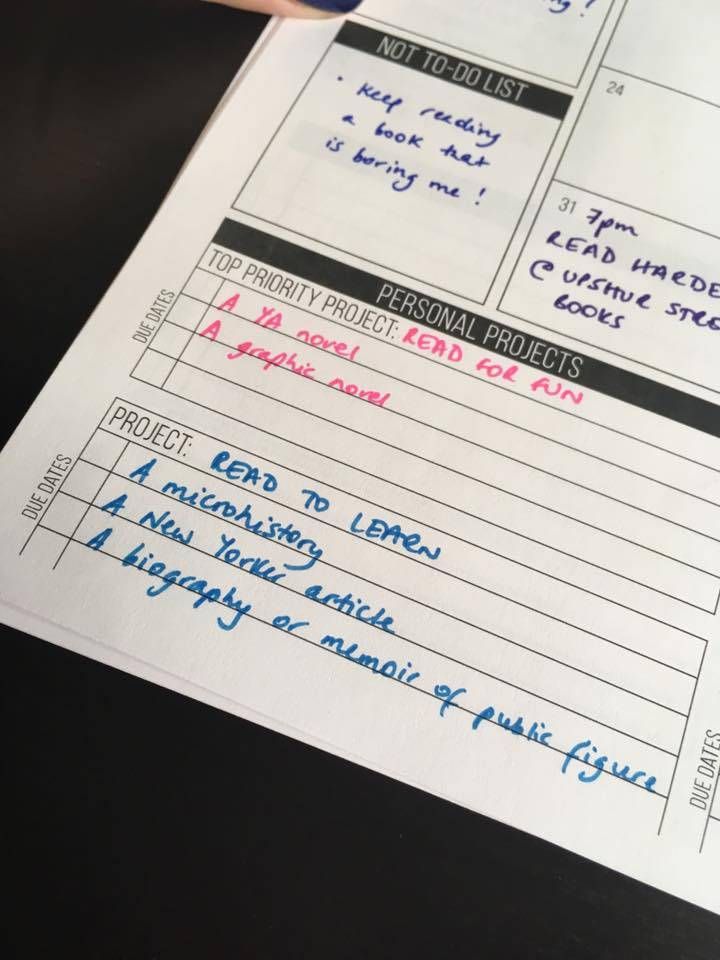 NOT TO-DO LIST
• Keep reading
a book that
is boring me!
24
31 7pm
READ HARDE
@ UPSHUR STRE
BOOKS
PERSONAL PROJECTS
TOP PRIORITY PROJECT: READ FOR FUN
DUE DATES
A YA novel
A graphic novel
PROJECT: READ TO LEARN
DUE DATES
A microhistory
A New Yorker article
A biography or memoir of public figure
DUE DATES